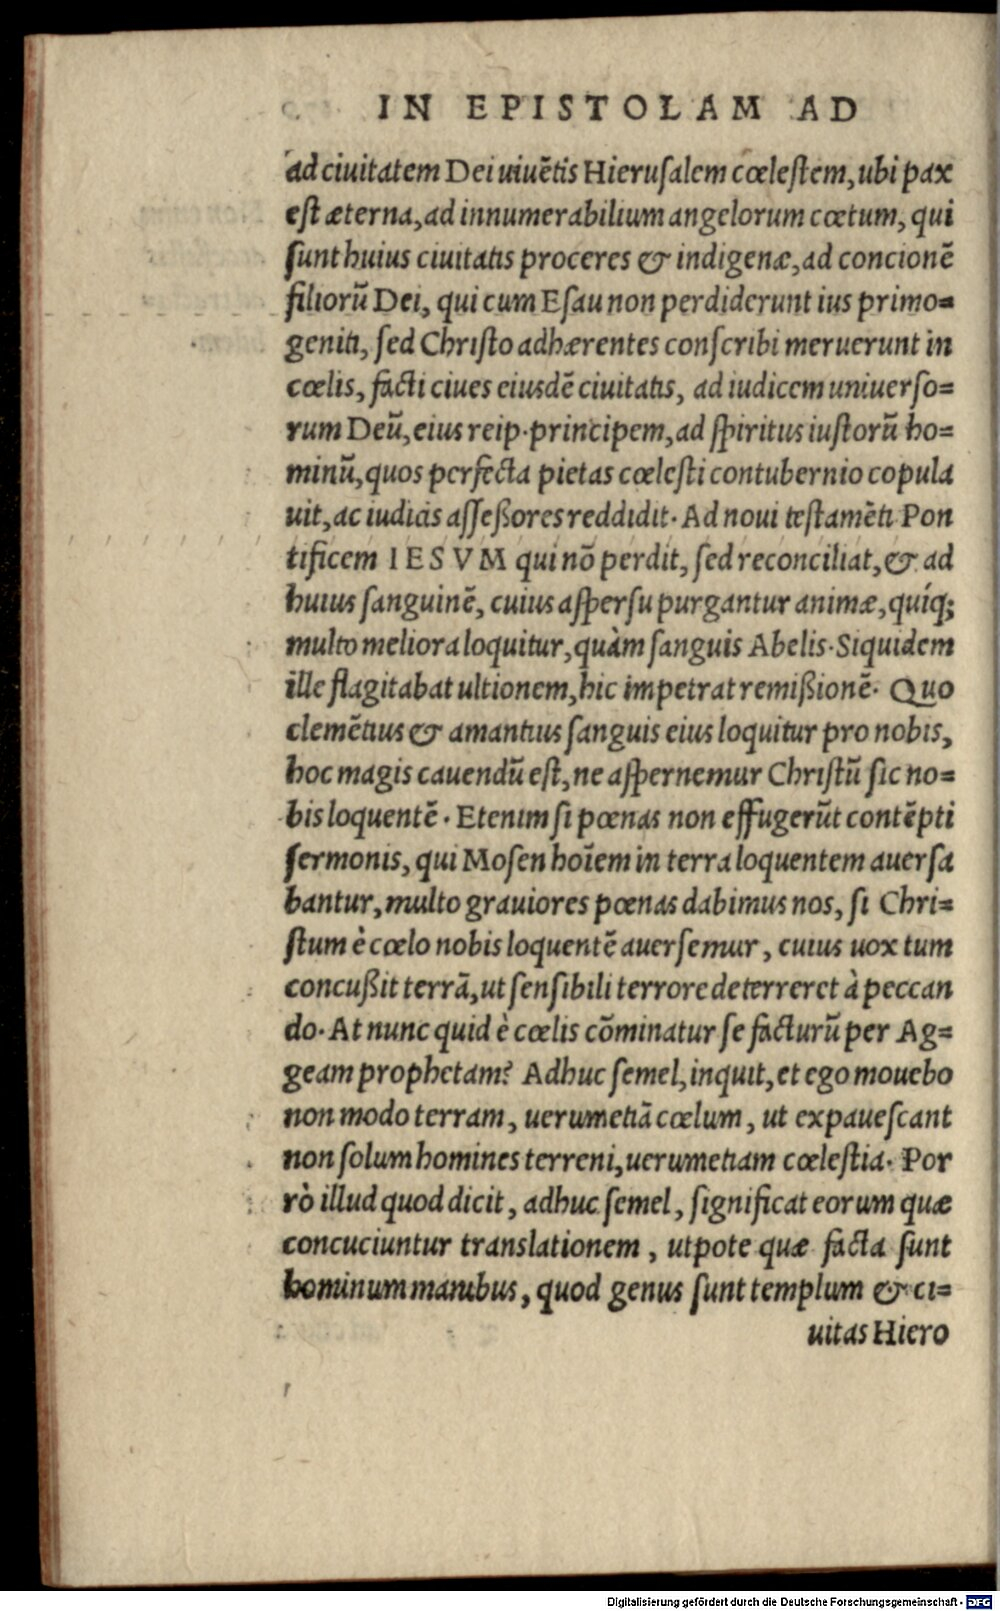 IN EPISTOLAM AD
ad ciuitatem Dei uiuẽtis Hierusalem cœlestem, ubi pax
est æterna, ad innumerabilium angelorum cœtum, qui
sunt huius ciuitatis proceres & indigenæ, ad concionẽ
filiorũ Dei, qui cum Esau non perdiderunt ius primo=
geniti, sed Christo adhærentes conscribi meruerunt in
cœlis, facti ciues eiusdẽ ciuitatis, ad iudicem uniuerso=
rum Deũ, eius reip. principem, ad spiritus iustorũ ho=
minũ, quos perfecta pietas cœlesti contubernio copula
uit, ac iudicis asseßores reddidit. Ad noui testamẽti Pon
tificem IESVM qui nõ perdit, sed reconciliat, & ad
huius sanguinẽ, cuius aspersu purgantur animæ, quíq;
multo meliora loquitur, quàm sanguis Abelis. Siquidem
ille flagitabat ultionem, hic impetrat remißionẽ. Quo
clemẽtius & amantius sanguis eius loquitur pro nobis,
hoc magis cauendũ est, ne aspernemur Christũ sic no=
bis loquentẽ. Etenim si pœnas non effugerũt contẽpti
sermonis, qui Mosen hoĩem in terra loquentem auersa
bantur, multo grauiores pœnas dabimus nos, si Chri=
stum è cœlo nobis loquentẽ auersemur, cuius uox tum
concußit terrã, ut sensibili terrore deterreret à peccan
do. At nunc quid è cœlis cõminatur se facturũ per Ag=
geam prophetam? Adhuc semel, inquit, et ego mouebo
non modo terram, uerumetiã cœlum, ut expauescant
non solum homines terreni, uerumetiam cœlestia. Por
rò illud quod dicit, adhuc semel, significat eorum quæ
concuciuntur translationem, utpote quæ facta sunt
hominum manibus, quod genus sunt templum & ci=
uitas Hiero
Digitalisierung gefördert durch die Deutsche Forschungsgemeinschaft - DFG